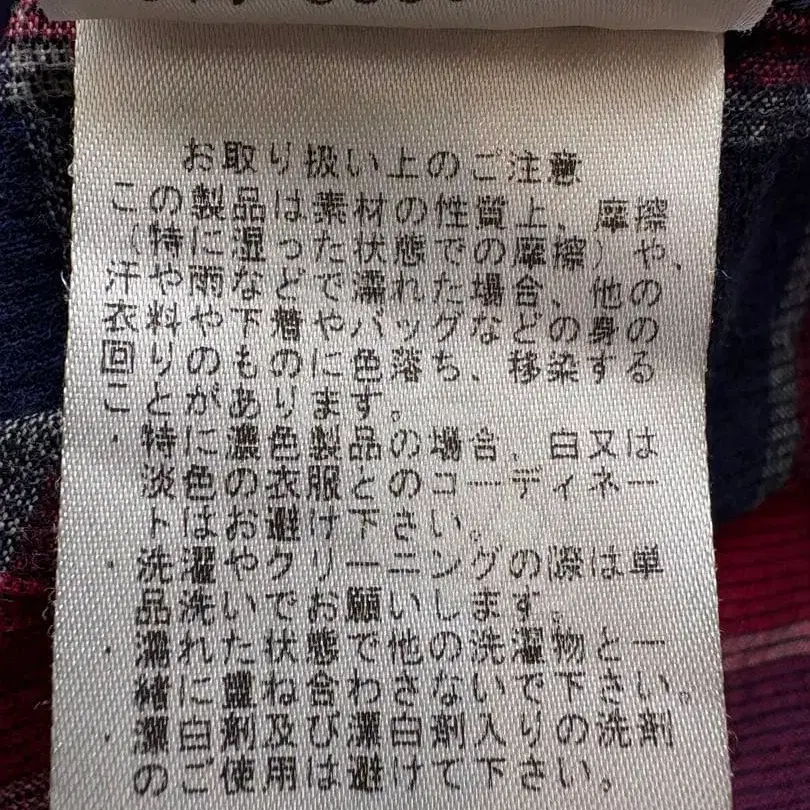 お取り扱い上のご注意
この製品は素材の性質上、摩擦
（特に湿った状態での摩擦）や、
汗や雨などで濡れた場合、他の
衣料や下着やバッグなどの身の
回りのものに色落ち、移染する
ことがあります。
・特に濃色製品の場合、白又は
淡色の衣服とのコーディネー
トはお避け下さい。
・洗濯やクリーニングの際は単
品洗いでお願いします。
・濡れた状態で他の洗濯物と一
緒に重ね合わさないで下さい。
・漂白剤及び漂白剤入りの洗剤
のご使用は避けて下さい。